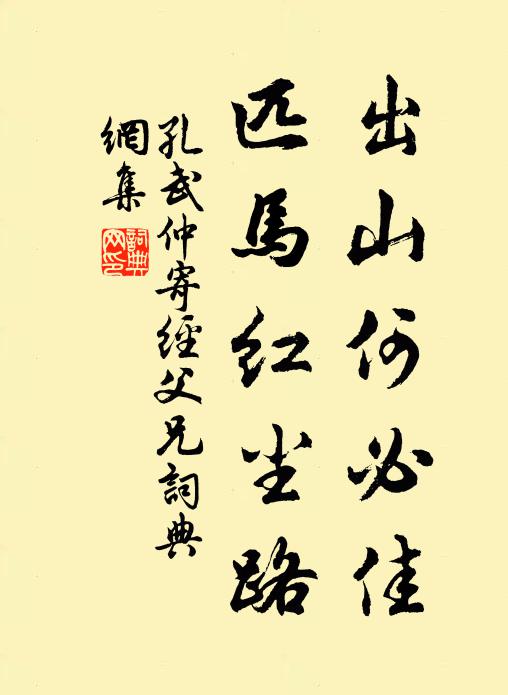 出山何必佳
匹馬紅尘路
孔武仲寄經父兄詞典
網集
詞典
网印